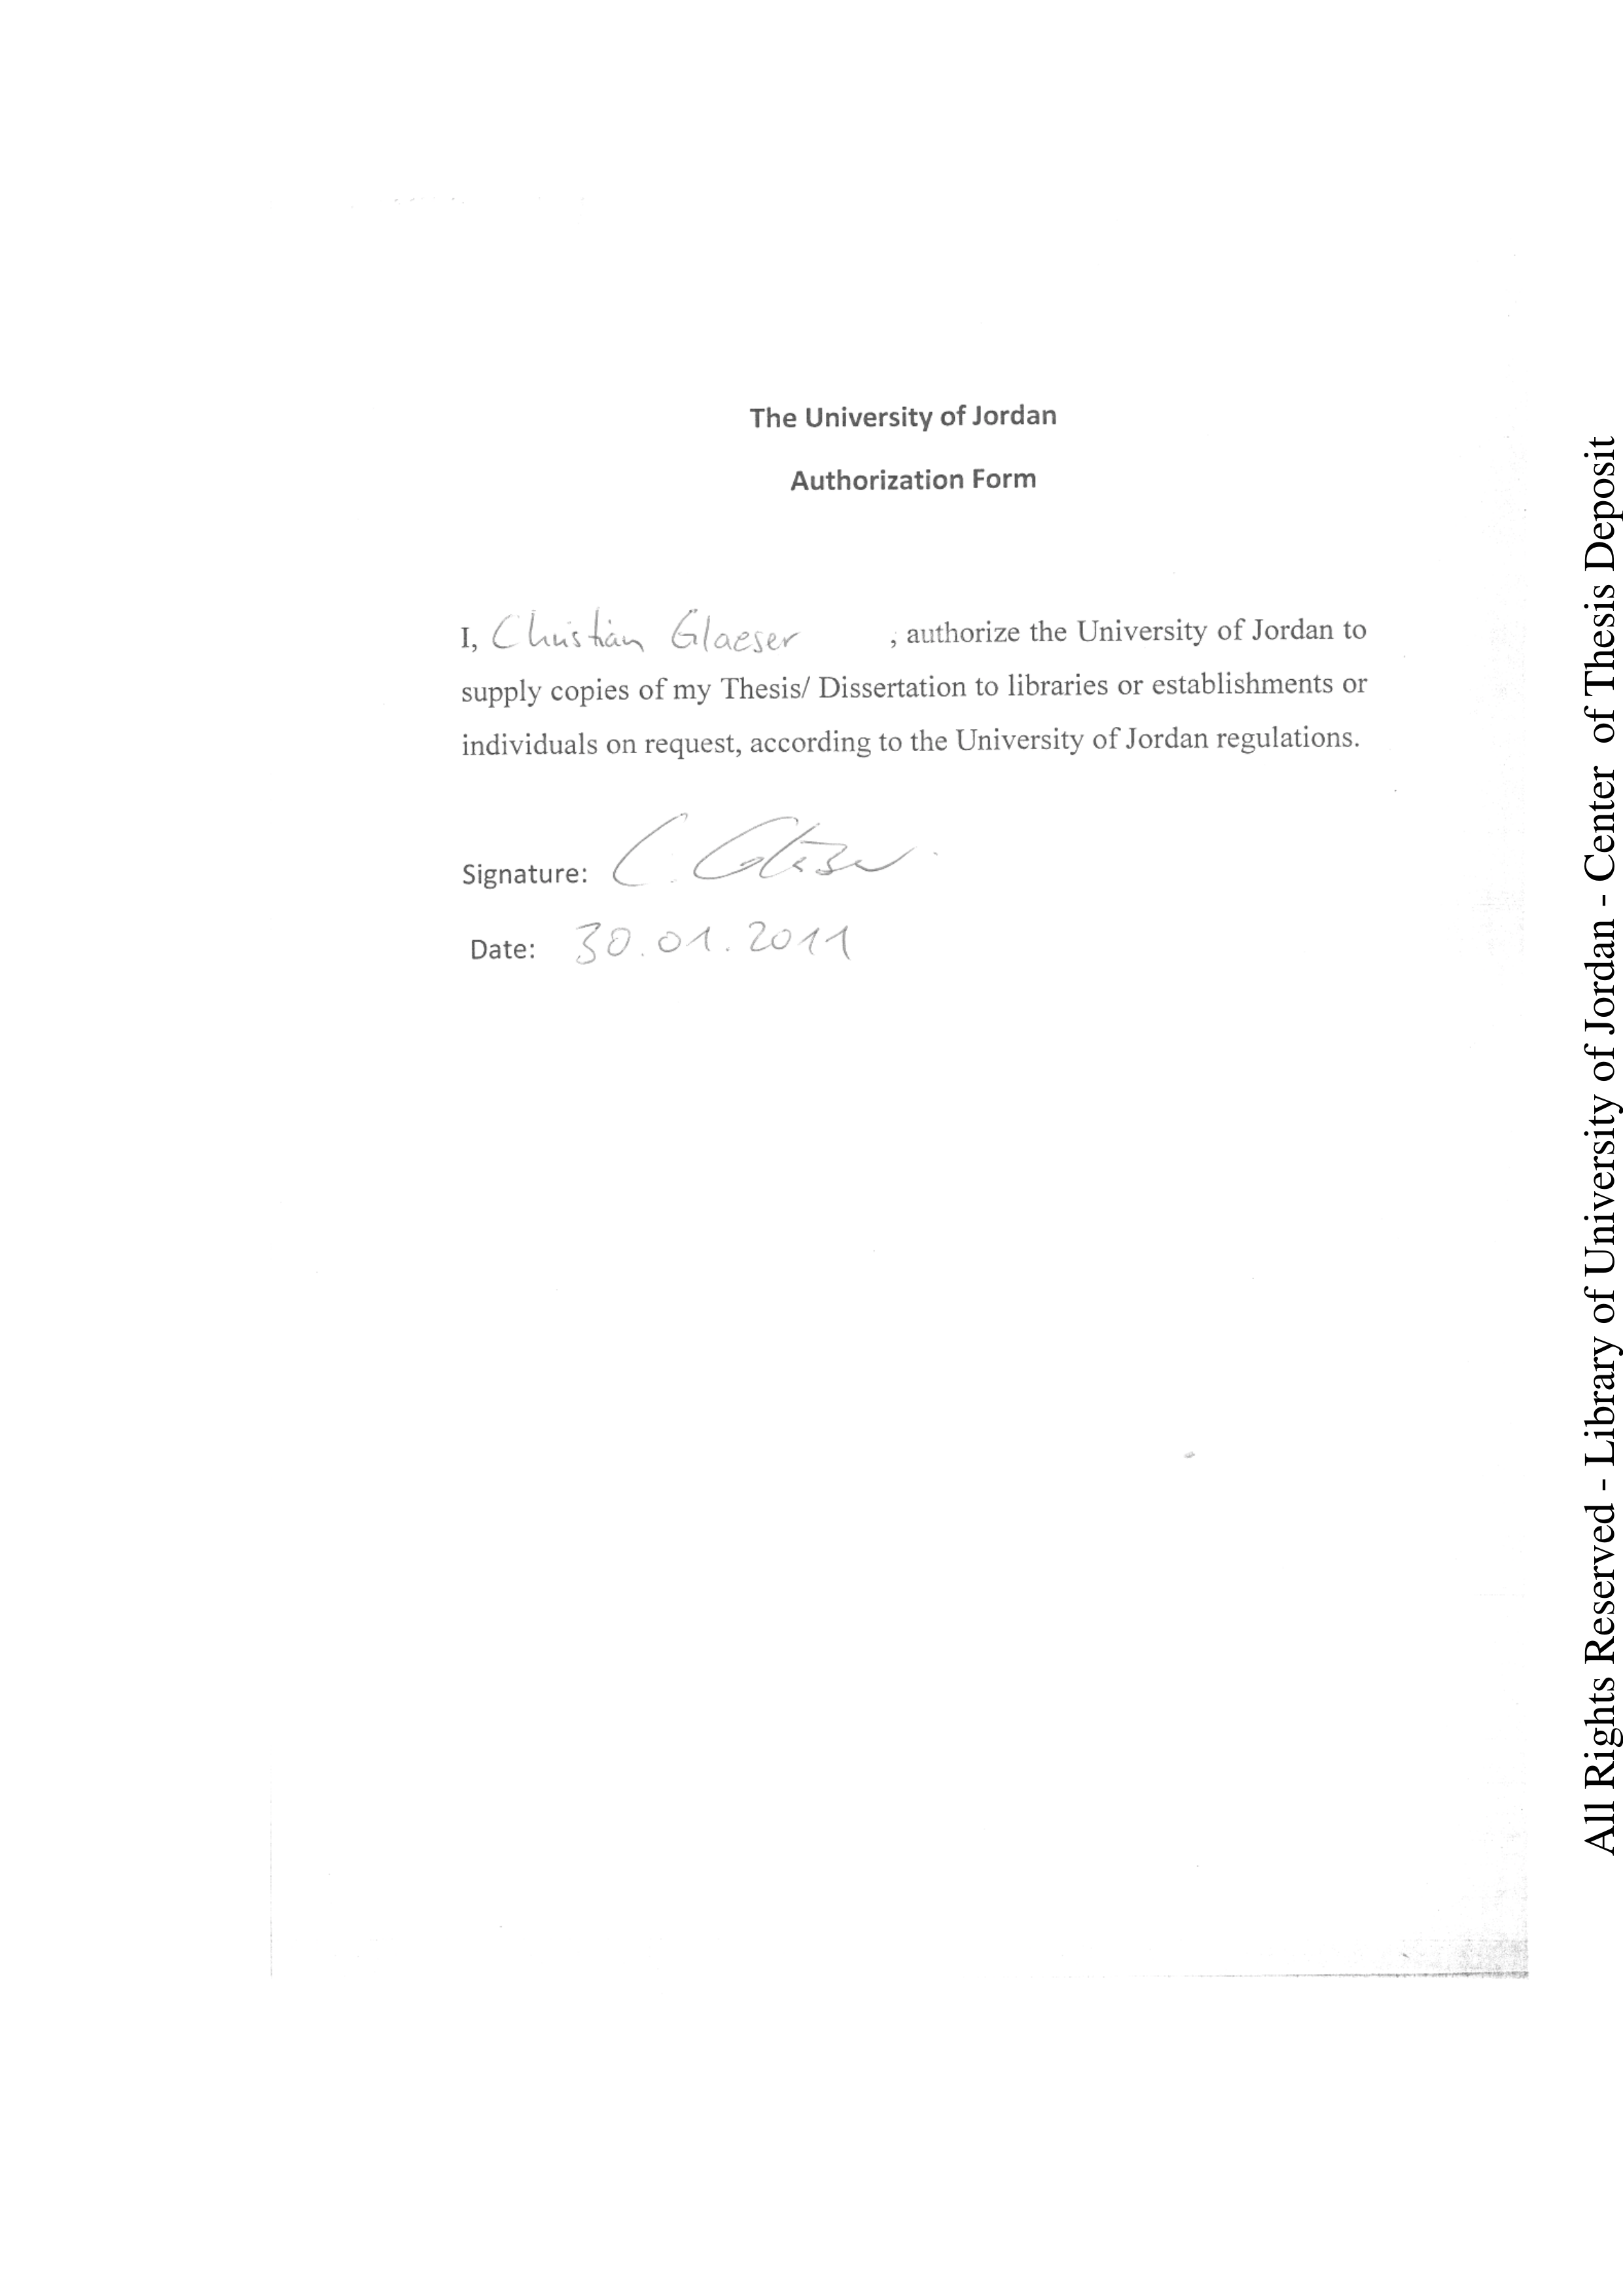 The University of Jordan
Authorization Form
I, Christian Glaeser , authorize the University of Jordan to
supply copies of my Thesis/ Dissertation to libraries or establishments or
individuals on request, according to the University of Jordan regulations.
Signature: C. Gläser
Date: 30.01.2011
All Rights Reserved - Library of University of Jordan - Center of Thesis Deposit